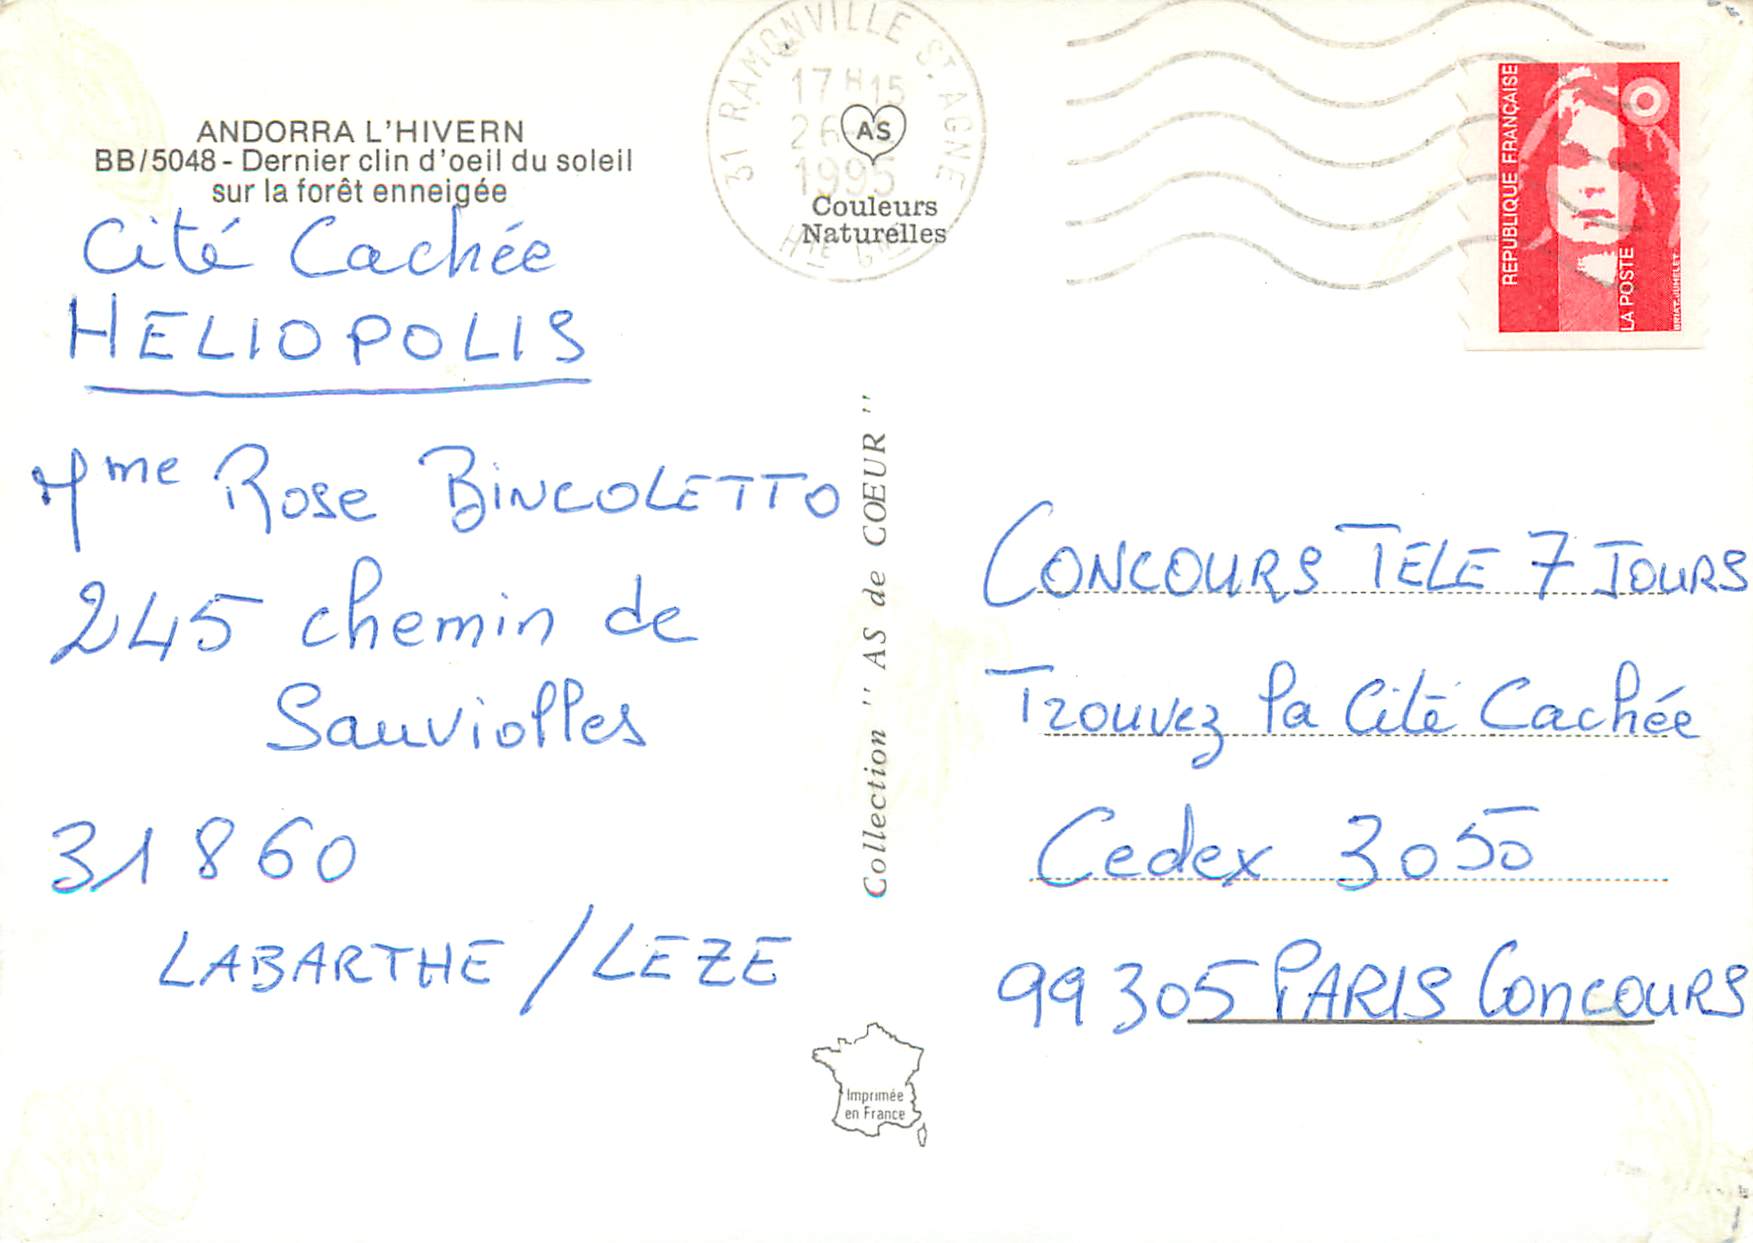 ANDORRA L'HIVERN
BB/5048 - Dernier clin d'oeil du soleil
sur la forêt enneigée
Cité Cachée
HELIOPOLIS
Mme Rose BINCOLETTO
245 chemin de
Sauviolles
31860
LABARTHE / LEZE
31 RAMONVILLE ST AGNE
17H15
26
1995
AS
Couleurs
Naturelles
Collection "AS de CŒUR"
Imprimée
en France
REPUBLIQUE FRANÇAISE
LA POSTE
BRIAT.JUMELET
CONCOURS TELE 7 JOURS
Trouvez la Cité Cachée
Cedex 3050
99305 PARIS CONCOURS